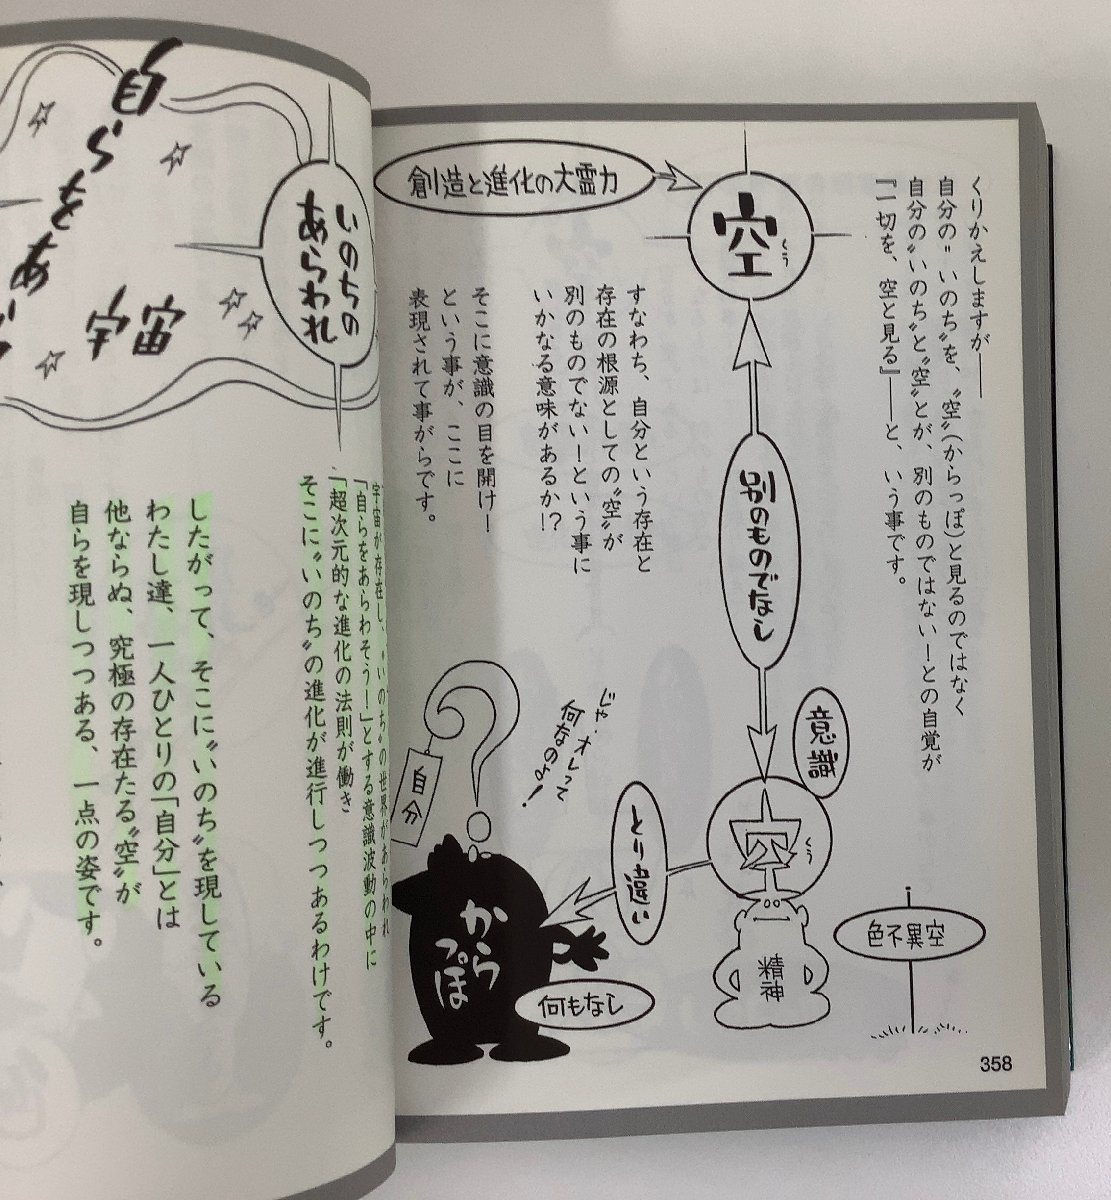 くりかえしますが――
自分の〝いのち〟を、〝空〟(からっぽ)と見るのではなく
自分の〝いのち〟と〝空〟とが、別のものではない!との自覚が
『一切を、空と見る』――と、いう事です。
空
くう
創造と進化の大霊力
別のものでなし
すなわち、自分という存在と
存在の根源としての〝空〟が
別のものでない!という事に
いかなる意味があるか!?
そこに意識の目を開け!
という事が、ここに
表現されて事がらです。
意識
空
くう
精神
色不異空
とり違い
じゃ・オレって
何なのょ!
自分
からっぽ
何もなし
358
いのちの
あらわれ
自らをあ
宇宙
宇宙が存在し、〝いのち〟の世界があらわれ
「自らをあらわそう!」とする意識波動の中に
「超次元的な進化の法則が働き
そこに〝いのち〟の進化が進行しつつあるわけです。
したがって、そこに〝いのち〟を現している
わたし達、一人ひとりの「自分」とは
他ならぬ、究極の存在たる〝空〟が
自らを現しつつある、一点の姿です。